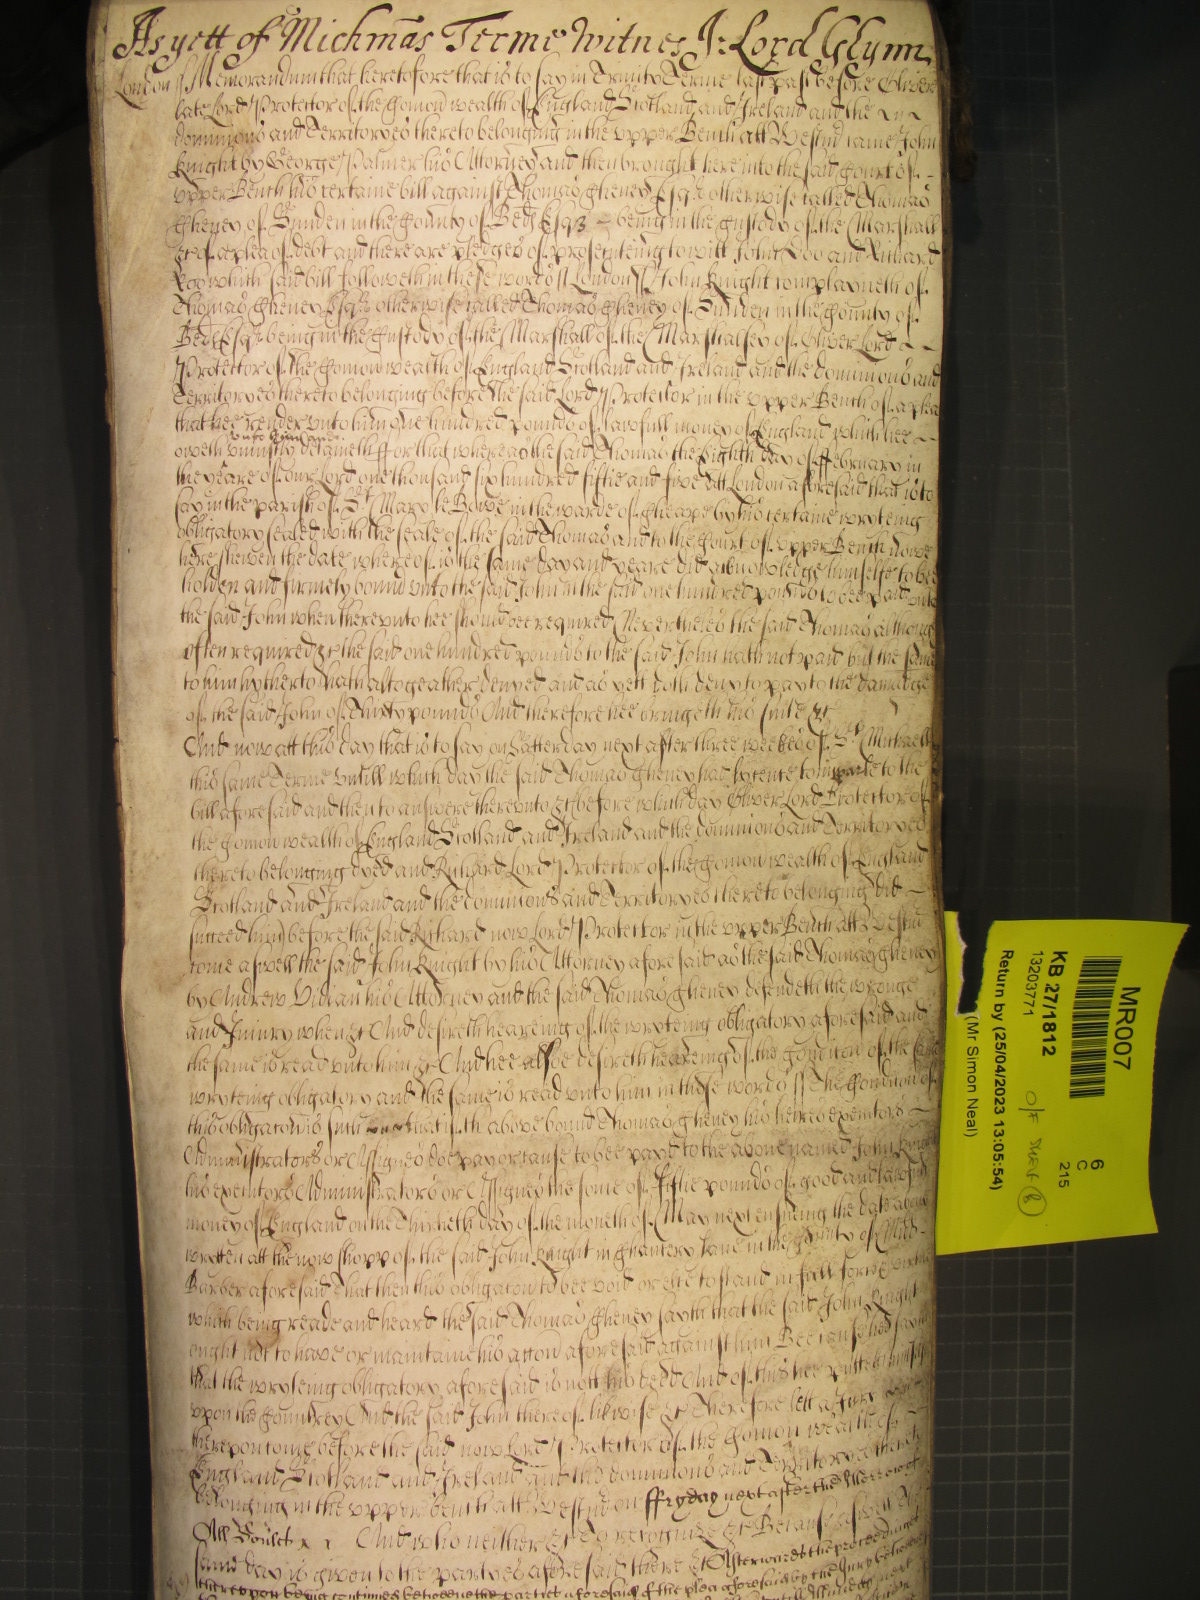 As yett of Michmas Terme Witnes J: Lord Glynn
London ss Memorandum that heretofore that is to say in Trinity Terme last past before Oliver
late Lord Protector of the Comon wealth of England Scotland and Ireland and the
dominions and Territoryes thereto belonging in the upper Bench att Westm came John
Knight by George Palmer his Attorney and then brought here into the said Court of
upper Bench his certaine bill against Thomas Cheney Esqr otherwise called Thomas
Cheney of Sunden in the County of Bedf Esq3 being in the Custody of the Marshall
&c of a plea of debt and there are pledges of prosecuteing to witt John Doo and Richard
Roo which said bill followeth in these words ss London ss John Knight complayneth of
Thomas Cheney Esqr otherwise called Thomas Cheney of Sunden in the County of
Bedf Esqr being in the Custody of the Marshall of the Marshalsey of Oliver Lord
Protector of the Comon wealth of England Scotland and Ireland and the dominions and
Territoryes thereto belonging before the said Lord Protector in the upper Bench of a plea
that hee render unto him one hundred pounds of lawfull money of England which hee
unto him and
oweth uniustly detaineth For that whereas the said Thomas the Eighth day of February in
the yeare of our Lord one thousand six hundred fiftie and five att London aforesaid that is to
say in the parish of St Mary le Bowe in the warde of Cheape by his certaine wryteing
obligatory sealed with the seale of the said Thomas and to the Court of upper Bench nowe
here shewen the date whereof is the same day and yeare did acknowledge himselfe to bee
holden and firmely bound unto the said John in the said one hundred pounds to bee paid unto
the said John when thereunto hee should bee required Neverthelesse the said Thomas although
often required &c the said one hundred pounds to the said John hath not paid but the same
to him hytherto hath altogeather denyed and as yett doth deny to pay to the damadge
of the said John of Thirty pounds And therefore hee bringeth his suite &c
And now att this day that is to say on Satterday next after three weekes of St Michaell
this same Terme untill which day the said Thomas Cheney had lycence to imparle to the
bill aforesaid and then to answere thereunto &c before which day Oliver Lord Protector of
the Comon wealth of England Scotland and Ireland and the dominions and Territoryes
thereto belonging dyed and Richard Lord Protector of the Comon wealth of England
Scotland and Ireland and the dominions and Territoryes thereto belonging did
succeed him before the said Richard now Lord Protector in the upper Bench att Westm
come aswell the said John Knight by his Attorney aforesaid as the said Thomas Cheney
by Andrew his Attorney and the said Thomas Cheney defendeth the wronge
and Iniury when &c And desireth heareing of the wryteing obligatory aforesaid and
the same is read unto him &c And hee alsoe desireth heareing of the Condicon of the said
wryteing obligatory and the same is read unto him in these words ss The Condicon of
this obligacon is such that if th above bound Thomas Cheney his heires executors
Administrators or Assignes doe pay or cause to bee payd to the above named John Knight
his executors Administrators or Assignes the some of Fiftie pounds of good and lawfull
money of England on the Thirtieth day of the moneth of May next ensueing the date above
wrytten att the now shopp of the said John Knight in Chancery Lane in the County of Midd
Barber aforesaid That then this obligacon to bee void or else to stand in full force
which being reade and heard the said Thomas Cheney sayth that the said John Knight
ought not to have or maintaine his accon aforesaid against him Because hee sayth
that the wryteing obligatory aforesaid is nott his deed And of this hee putteth himselfe
upon the Countrey And the said John thereof likwise &c Therefore lett a Jury
thereupon come before the said now Lord Protector of the Comon wealth of
England Scotland and Ireland and the dominions and Territoryes thereto
belonging in the upper bench att Westm on ffryday next after the Morrow of
All Soules And who neither &c to recognize &c Because aswell &c
same day is given to the partyes aforesaid there &c Afterwards the proceedings
thereupon being continued betweene the parties aforesaid of the plea aforesaid by the Jury
MR007
KB 27/1812
13203771
Return by (25/04/2023 13:05:54)
(Mr Simon Neal)
6
C
215